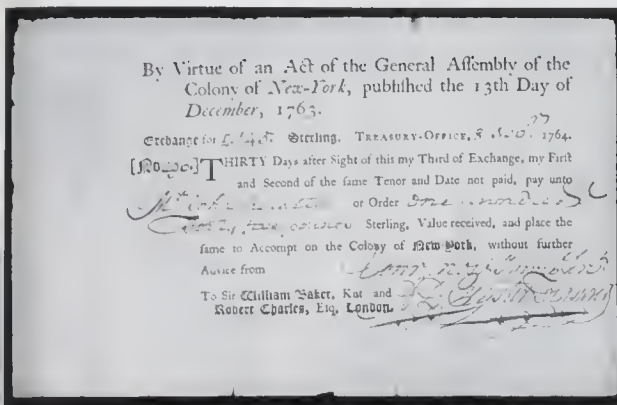 By Virtue of an Act of the General Aſſembly of the
Colony of New-York, publiſhed the 13th Day of
December, 1763.
Exchange for £. Sterling. TREASURY-OFFICE, 1764.
[No. ] THIRTY Days after Sight of this my Third of Exchange, my Firſt
and Second of the ſame Tenor and Date not paid, pay unto
or Order One Hundred
Sterling, Value received, and place the
ſame to Accompt on the Colony of New York, without further
Advice from
To Sir William Baker, Knt and
Robert Charles, Eſq. London.